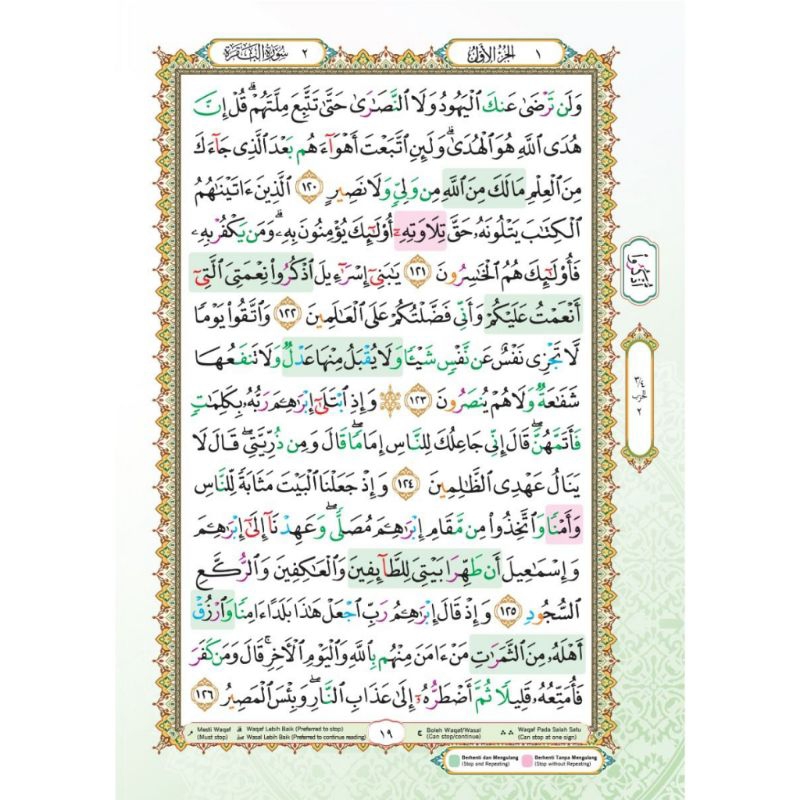 ٢ سُورَةُ الْبَقَرَةِ
الجُزْءُ الأَوَّلُ ١
وَلَن تَرْضَىٰ عَنكَ ٱلْيَهُودُ وَلَا ٱلنَّصَـٰرَىٰ حَتَّىٰ تَتَّبِعَ مِلَّتَهُمْ ۗ قُلْ إِنَّ
هُدَى ٱللَّهِ هُوَ ٱلْهُدَىٰ ۗ وَلَئِنِ ٱتَّبَعْتَ أَهْوَآءَهُم بَعْدَ ٱلَّذِى جَآءَكَ
مِنَ ٱلْعِلْمِ مَا لَكَ مِنَ ٱللَّهِ مِن وَلِىٍّ وَلَا نَصِيرٍ ١٢٠ ٱلَّذِينَ ءَاتَيْنَـٰهُمُ
ٱلْكِتَـٰبَ يَتْلُونَهُۥ حَقَّ تِلَاوَتِهِۦٓ أُو۟لَـٰٓئِكَ يُؤْمِنُونَ بِهِۦ ۗ وَمَن يَكْفُرْ بِهِۦ
فَأُو۟لَـٰٓئِكَ هُمُ ٱلْخَـٰسِرُونَ ١٢١ يَـٰبَنِىٓ إِسْرَٰٓءِيلَ ٱذْكُرُوا۟ نِعْمَتِىَ ٱلَّتِىٓ
أَنْعَمْتُ عَلَيْكُمْ وَأَنِّى فَضَّلْتُكُمْ عَلَى ٱلْعَـٰلَمِينَ ١٢٢ وَٱتَّقُوا۟ يَوْمًا
لَّا تَجْزِى نَفْسٌ عَن نَّفْسٍ شَيْـًٔا وَلَا يُقْبَلُ مِنْهَا عَدْلٌ وَلَا تَنفَعُهَا
شَفَـٰعَةٌ وَلَا هُمْ يُنصَرُونَ ١٢٣ ۞ وَإِذِ ٱبْتَلَىٰٓ إِبْرَٰهِـۧمَ رَبُّهُۥ بِكَلِمَـٰتٍ
فَأَتَمَّهُنَّ ۖ قَالَ إِنِّى جَاعِلُكَ لِلنَّاسِ إِمَامًا ۖ قَالَ وَمِن ذُرِّيَّتِى ۖ قَالَ لَا
يَنَالُ عَهْدِى ٱلظَّـٰلِمِينَ ١٢٤ وَإِذْ جَعَلْنَا ٱلْبَيْتَ مَثَابَةً لِّلنَّاسِ
وَأَمْنًا وَٱتَّخِذُوا۟ مِن مَّقَامِ إِبْرَٰهِـۧمَ مُصَلًّى ۖ وَعَهِدْنَآ إِلَىٰٓ إِبْرَٰهِـۧمَ
وَإِسْمَـٰعِيلَ أَن طَهِّرَا بَيْتِىَ لِلطَّآئِفِينَ وَٱلْعَـٰكِفِينَ وَٱلرُّكَّعِ
ٱلسُّجُودِ ١٢٥ وَإِذْ قَالَ إِبْرَٰهِـۧمُ رَبِّ ٱجْعَلْ هَـٰذَا بَلَدًا ءَامِنًا وَٱرْزُقْ
أَهْلَهُۥ مِنَ ٱلثَّمَرَٰتِ مَنْ ءَامَنَ مِنْهُم بِٱللَّهِ وَٱلْيَوْمِ ٱلْـَٔاخِرِ ۖ قَالَ وَمَن كَفَرَ
فَأُمَتِّعُهُۥ قَلِيلًا ثُمَّ أَضْطَرُّهُۥٓ إِلَىٰ عَذَابِ ٱلنَّارِ ۖ وَبِئْسَ ٱلْمَصِيرُ ١٢٦
اذْكُرُوا
٣/٤
الحزب
٢
Mesti Waqaf (Must stop)
Waqaf Lebih Baik (Preferred to stop)
Wasal Lebih Baik (Preferred to continue reading)
١٩
Boleh Waqaf/Wasal (Can stop/continue)
Waqaf Pada Salah Satu (Can stop at one sign)
Berhenti dan Mengulang (Stop and Repeating)
Berhenti Tanpa Mengulang (Stop without Repeating)